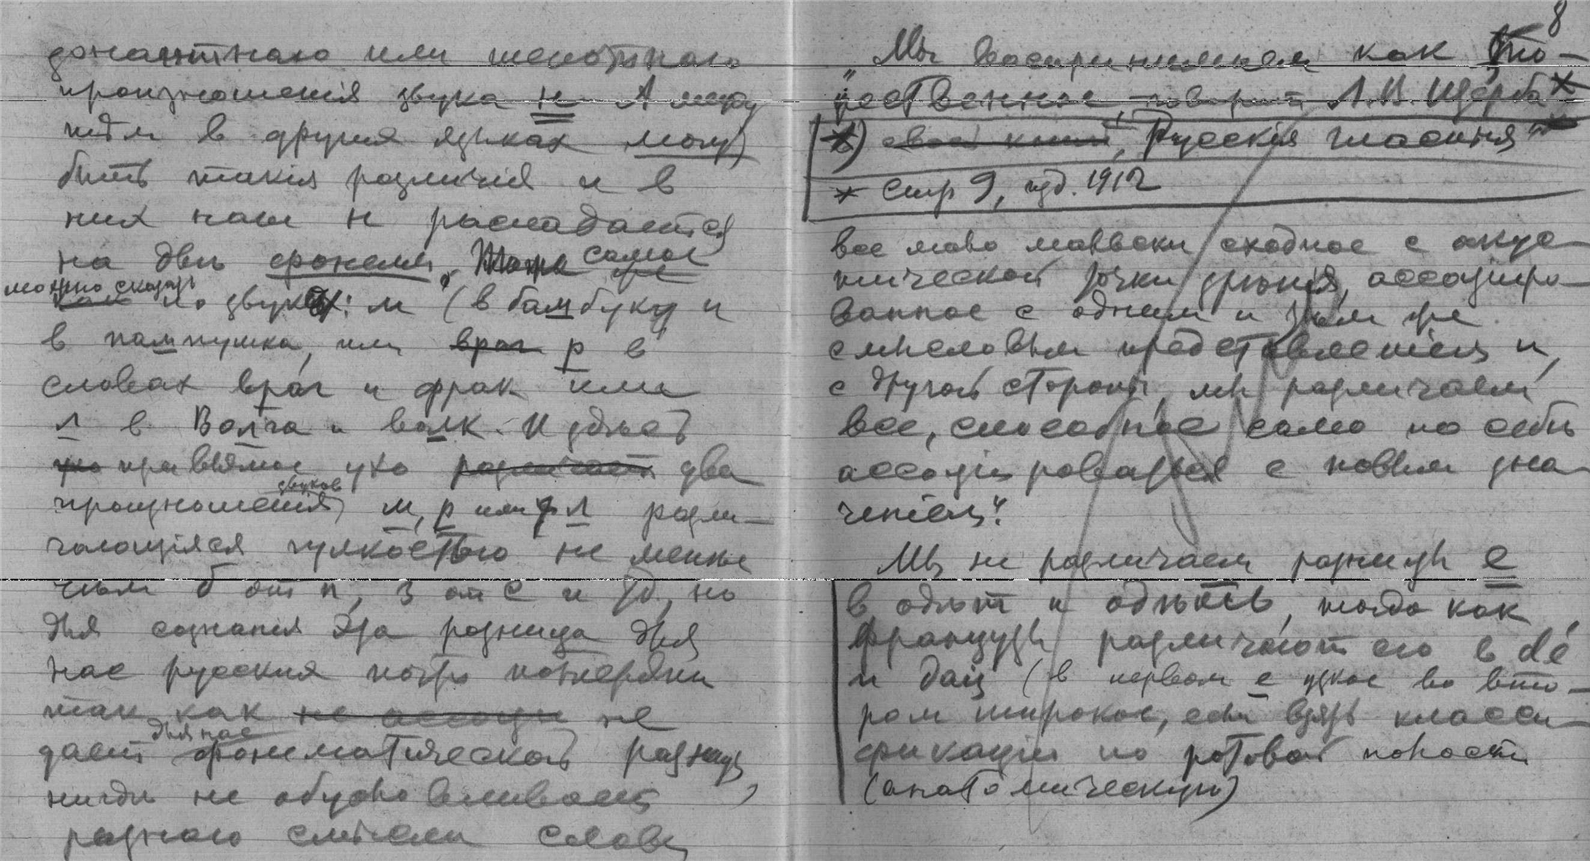 или шепотного
произношенія звука н А между
тѣм в других языках могут
быть такія различія и в
них наш н распадается
на двѣ фонемы. Тоже самое же
можно сказать
как по звукам: м (в бамбуку и
в пампушка, или враг р в
словах враг и фрак или
л в Волга и волк. И здѣсь
что привычное ухо различает два
звуков
произношенія м, р или л разли-
чающіяся гулкостью не менѣе
чѣм б от п, з от с и тд, но
для сознанія эта разница для
нас русских потеряна
так как не ассоци не
для нас
дает фонематической разницы,
нигдѣ не обусловливает
разного смысла слов
8
Мы воспринимаем как „то-
жественное, говорит Л.В. Щерба*
*) своей книги „Русскія гласныя"
* стр 9, изд. 1912
все мало мальски сходное с акус-
тической точки зрѣнія, ассоціиро-
ванное с одним и тѣм же
смысловым представленіем и,
с другой стороны, мы различаем
все, способное само по себѣ
ассоціироваться с новым зна-
ченіем".
Мы не различаем разницы е
в одѣт и одѣть, тогда как
французы различают его в dé
и dais (в первом е узкое во вто-
ром широкое, если взять класси-
фикацію по ротовой полости
(анатомическую)